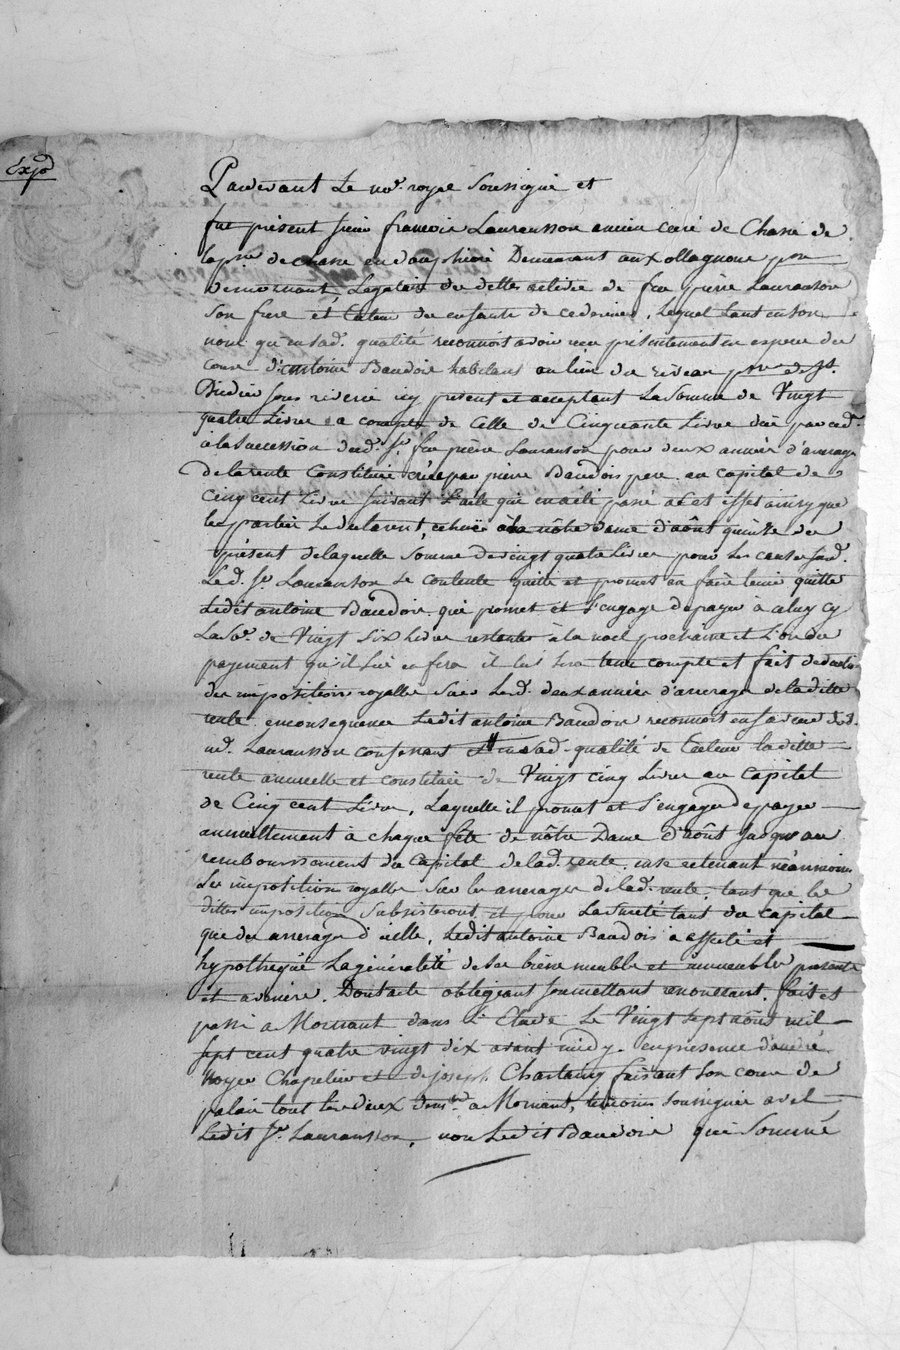 Expd
Pardevant Le nore. royal Soussigné et
fut présent sieur françois Lauransson ancien curé de Chasse de
la prse de chasse en dauphiné Demeurant aux ollagnons psse
de mornant, Legataire des dettes actives de feu pierre Lauranson
Son frere et tuteur des enfants de ce dernier, Lequel tant en son
nom qu'en sad. qualité reconnoit avoir reçu présentement en especes du
cours d'antoine Baudois habitant au lieu du prse de St.
Didier sous riverie icy present et acceptant La Somme de Vingt
quatre Livres a compte de Celle de Cinquante Livres düe par led.
à la Succession dud. Sr. feu pierre Lauranson pour deux années d'arrerages
de la rente Constituée créée par pierre Baudois pere au capital de
Cinq cent Livres suivant L'acte qui en a été passé a cet effet ainsy que
les parties Le declarent, echues à la nôtre dame d'aôut quinze du
présent de laquelle Somme de vingt quatre Livres pour les causes susd.
Led. Sr. Lauranson Se contente quitte et promet en faire tenir quitte
Ledit antoine Baudois, qui promet et s'engage de payer à celuy cy
La So. de Vingt Six Livres restante à la noel prochaine et L'ors du
payement qu'il lui en fera il lui sera tenu compte et fait deduction
des impositions royalles Sur Lesd. deux années d'arrerages de la ditte
rente. en consequence Ledit antoine Baudois reconnoit en faveur dud.
Sr. Lauransson en sad. qualité de tuteur la ditte
rente annuelle et constituée de Vingt cinq Livres au capital
de Cinq cent Livres, Laquelle il promet et s'engage de payer
annuellement à chaque fête de nôtre Dame d'aôut jusqu'au
remboursement du Capital de lad. rente, en se retenant néanmoins
Les impositions royalles Sur les arrerages de lad. rente, tant que les
dittes impositions Subsisteront, et pour La Sureté tant du capital
que des arrerages d'icelle, Ledit antoine Baudois a affecté et
hypothequé La généralité de Ses biens meubles et immeubles présents
et avenirs. Dont acte obligeant soumettant renonçant. fait et
passé a Mornant dans L'Etude Le Vingt sept aôut mil
sept cent quatre vingt dix avant midy. en presence d'andré
noyer Chapelier et de joseph faisant Son cours de
palais tout les deux demt. a Mornant, temoins Soussignés avec
Ledit Sr. Lauransson, non Ledit Baudois qui Sommé